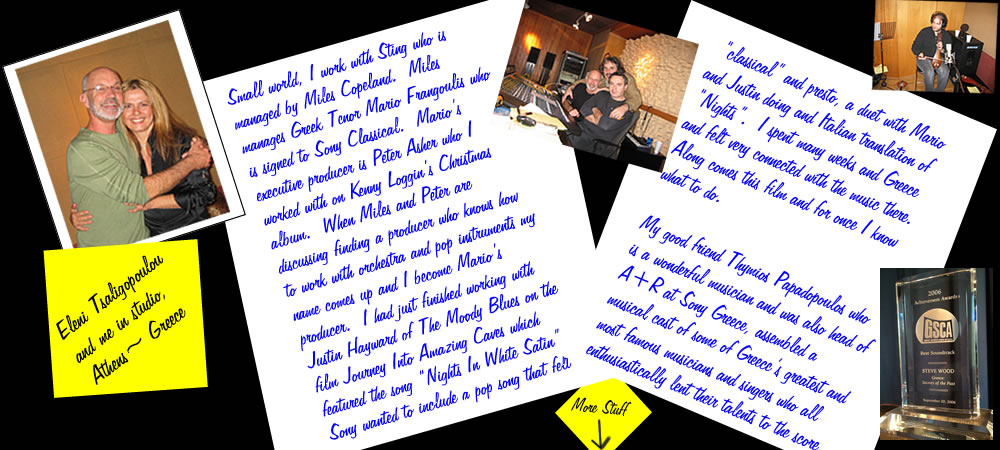 Small world, I work with Sting who is
managed by Miles Copeland. Miles
manages Greek Tenor Mario Frangoulis who
is signed to Sony Classical. Mario's
executive producer is Peter Asher who I
worked with on Kenny Loggin's Christmas
album. When Miles and Peter are
discussing finding a producer who knows how
to work with orchestra and pop instruments my
name comes up and I become Mario's
producer. I had just finished working with
Justin Hayward of The Moody Blues on the
film Journey Into Amazing Caves which
featured the song "Nights In White Satin"
Sony wanted to include a pop song that felt
"classical" and presto, a duet with Mario
and Justin doing and Italian translation of
"Nights". I spent many weeks and Greece
and felt very connected with the music there.
Along comes this film and for once I know
what to do.
My good friend Thymios Papadopoulos who
is a wonderful musician and was also head of
A+R at Sony Greece, assembled a
musical cast of some of Greece's greatest and
most famous musicians and singers who all
enthusiastically lent their talents to the score
Eleni Tsaligopoulou
and me in studio,
Athens~ Greece
More Stuff
2006
Achievement Awards
GSCA
Best Soundtrack
STEVE WOOD
Greece:
Secrets of the Past
September 20, 2006